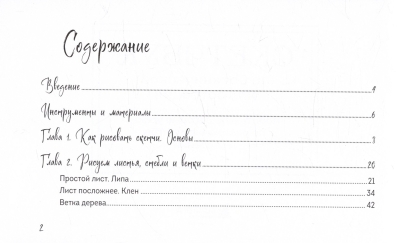 Содержание
Введение 4
Инструменты и материалы 6
Глава 1. Как рисовать скетчи. Основы 9
Глава 2. Рисуем листья, стебли и ветки 20
Простой лист. Липа 21
Лист посложнее. Клен 34
Ветка дерева 42
2